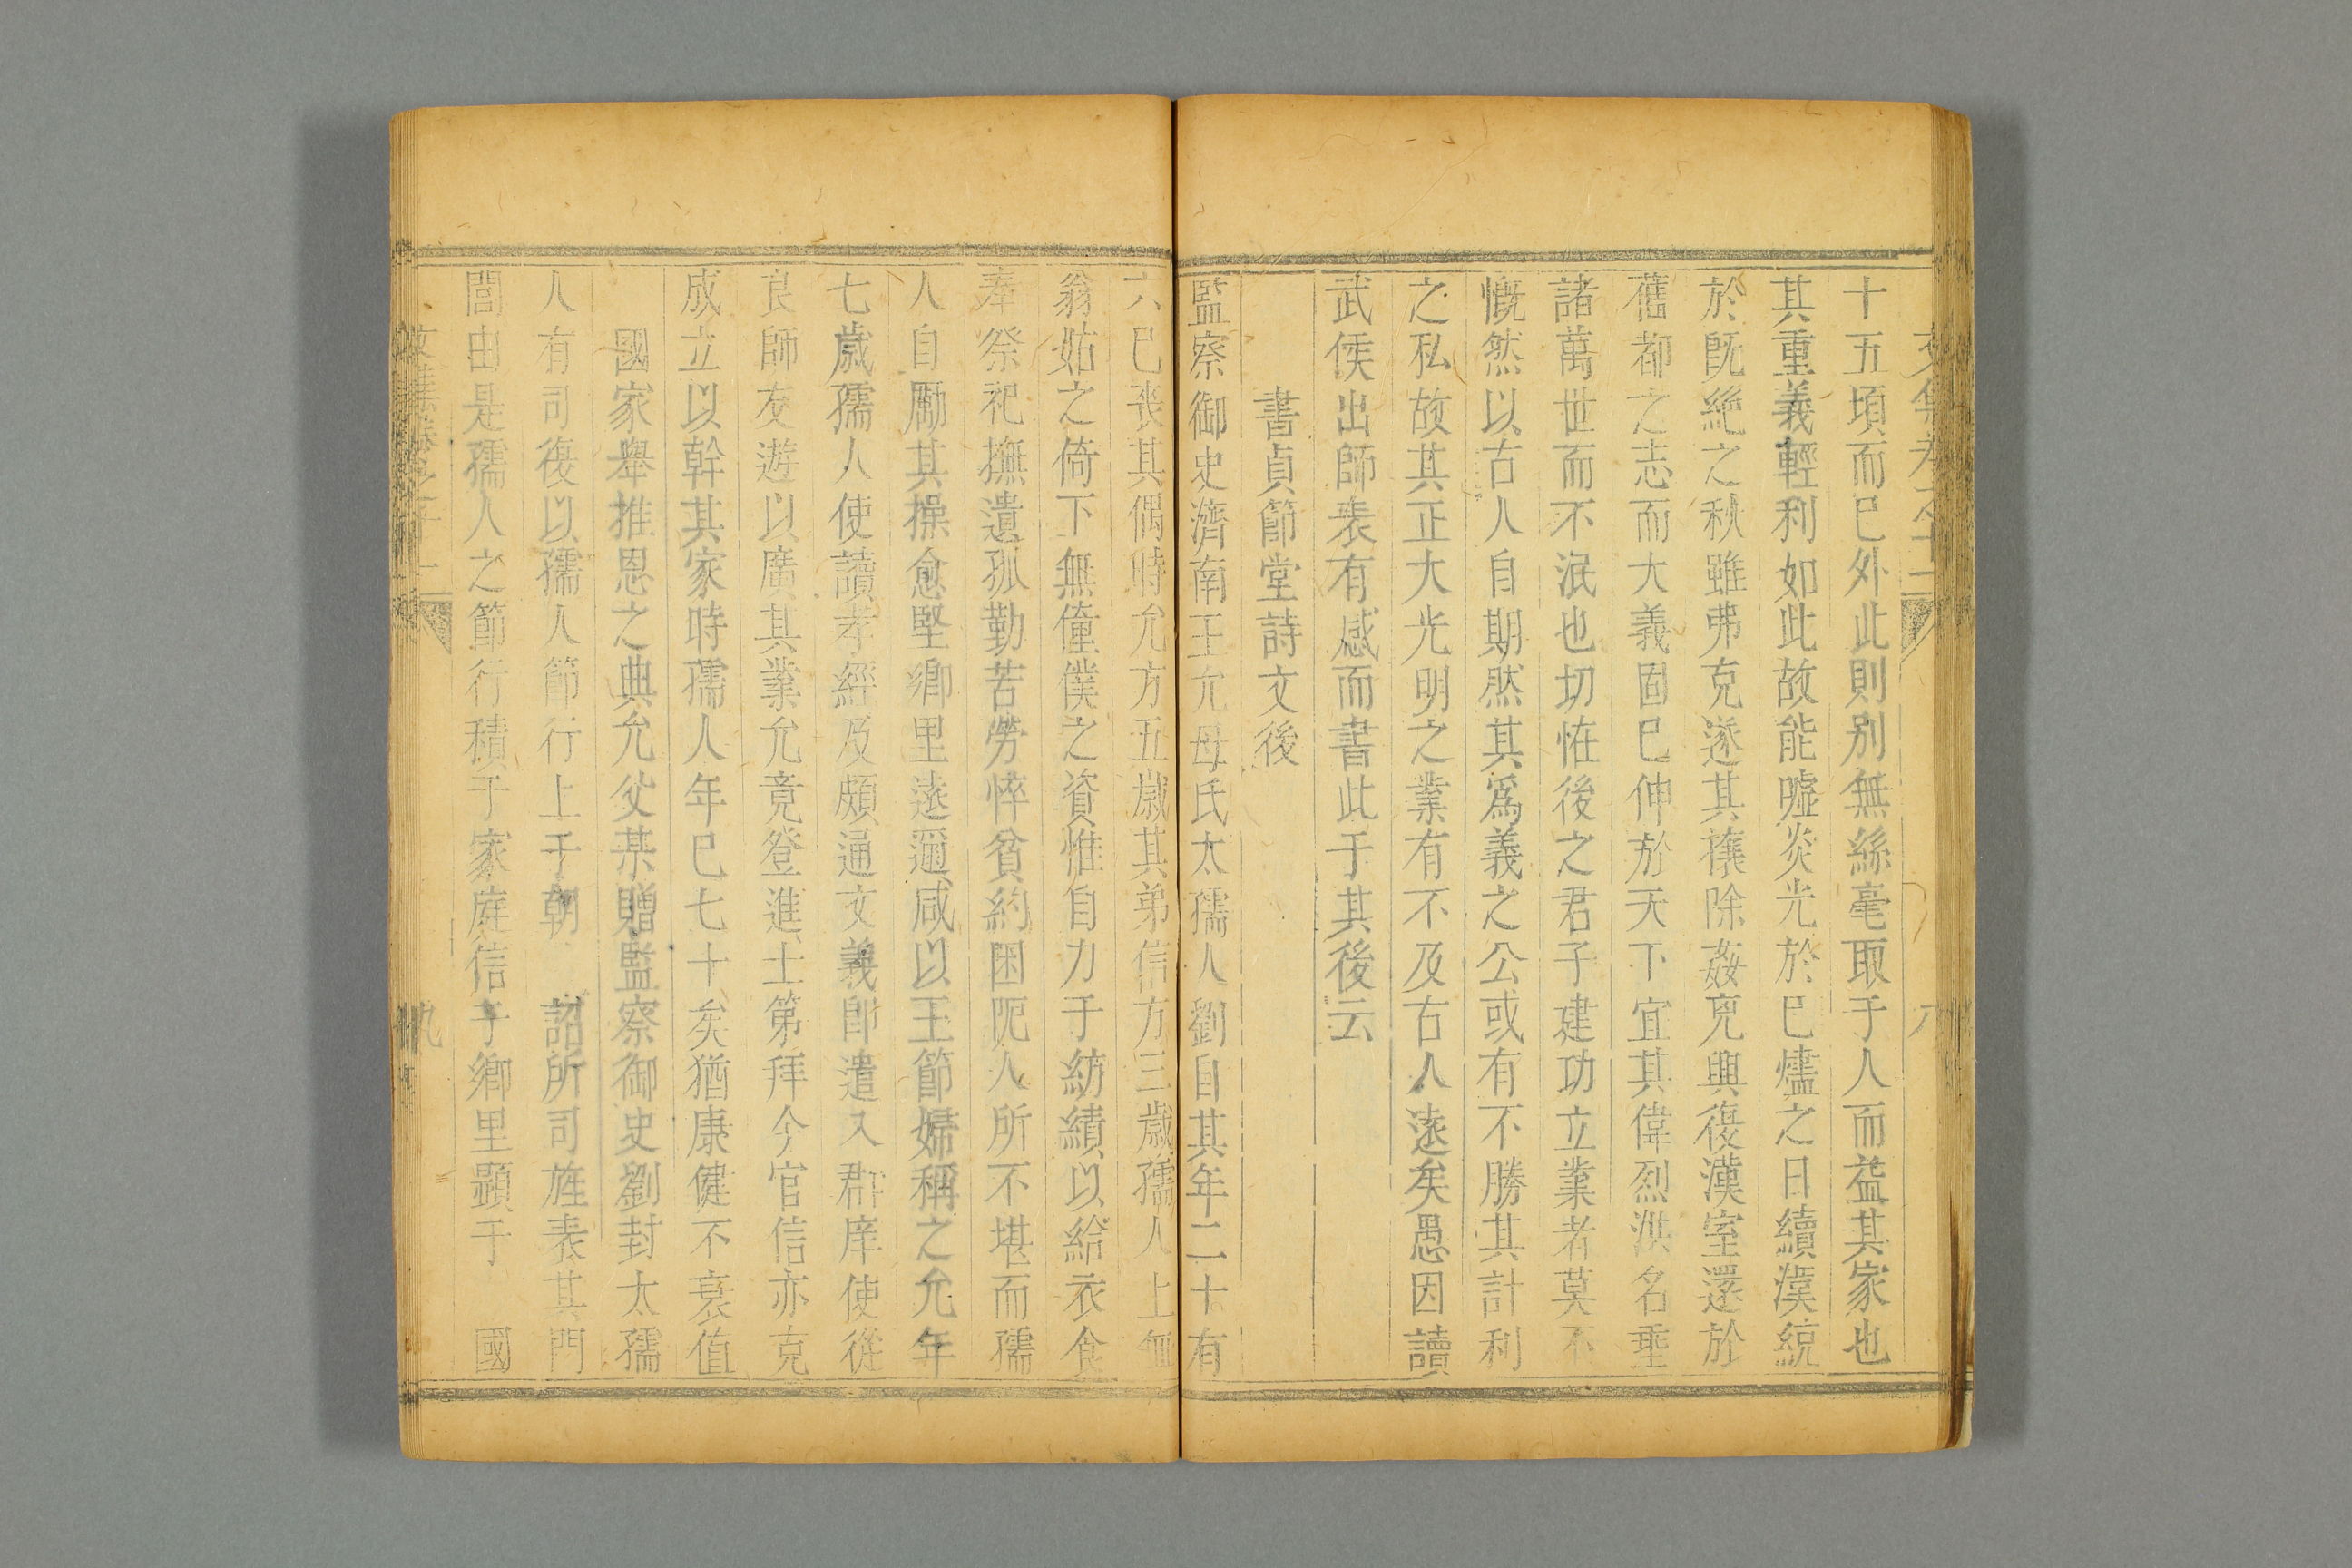 文集卷之十一
八
十五頃而已外此則別無絲毫取于人而益其家也
其重義輕利如此故能噓炎光於已燼之日續漢統
於旣絶之秋雖弗克遂其攘除姦兇興復漢室還於
舊都之志而大義固已伸於天下宜其偉烈洪名垂
諸萬世而不泯也切恠後之君子建功立業者莫不
慨然以古人自期然其爲義之公或有不勝其計利
之私故其正大光明之業有不及古人遠矣愚因讀
武侯出師表有感而書此于其後云
書貞節堂詩文後
監察御史濟南王允母氏太孺人劉自其年二十有
六已喪其偶時允方五歲其弟信方三歲孺人上無
翁姑之倚下無僮僕之資惟自力于紡績以給衣食
奉祭祀撫遺孤勤苦勞悴貧約困阨人所不堪而孺
人自勵其操愈堅鄉里遠邇咸以王節婦稱之允年
七歲孺人使讀孝經及頗通文義卽遣入群庠使從
良師友遊以廣其業允竟登進士第拜今官信亦克
成立以幹其家時孺人年已七十矣猶康健不衰值
國家舉推恩之典允父某贈監察御史劉封太孺
人有司復以孺人節行上于朝　詔所司旌表其門
閭由是孺人之節行積于家庭信于鄉里顯于　國
文集卷之十一
九